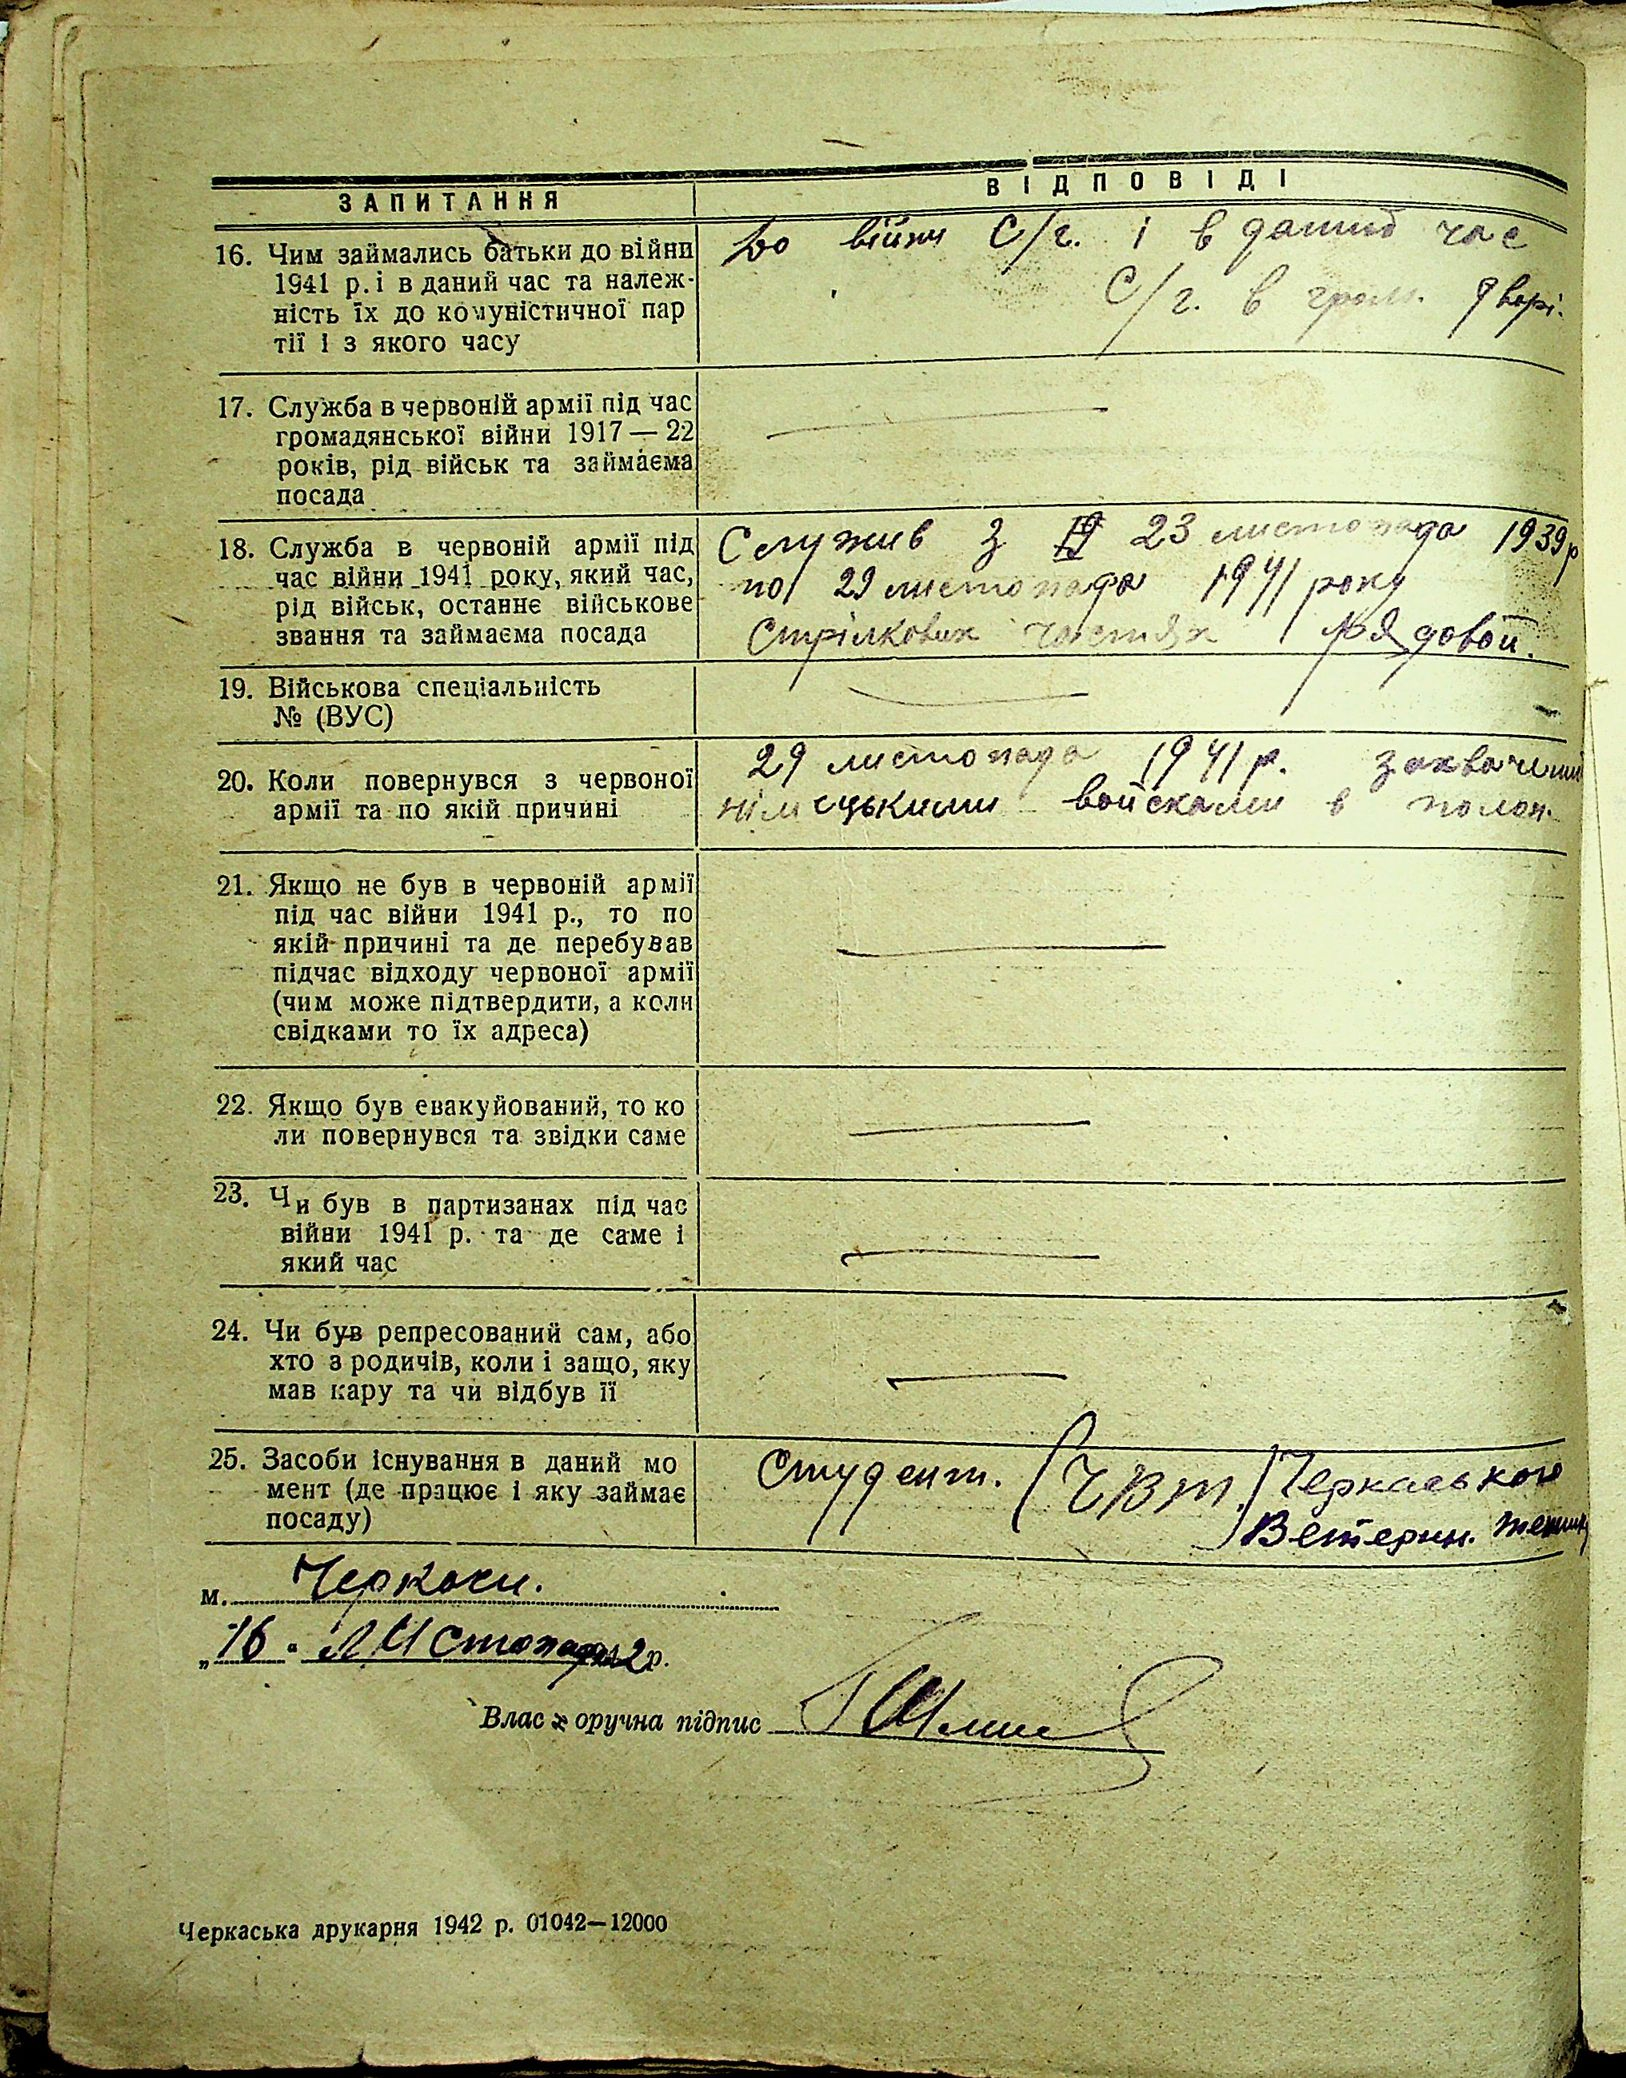 ЗАПИТАННЯ
ВІДПОВІДІ
16. Чим займались батьки до війни
1941 р. і в даний час та належ-
ність їх до комуністичної пар
тії і з якого часу
До війни С/г. і в даний час
С/г. в гром. дворі.
17. Служба в червоній армії під час
громадянської війни 1917—22
років, рід військ та займаєма
посада
18. Служба в червоній армії під
час війни 1941 року, який час,
рід військ, останнє військове
звання та займаєма посада
Служив з 23 листопада 1939р
по 29 листопада 1941 року
Стрілкових частях рядовой.
19. Військова спеціальність
№ (ВУС)
20. Коли повернувся з червоної
армії та по якій причині
29 листопада 1941 р. захвачений
німецькими войсками в полон.
21. Якщо не був в червоній армії
під час війни 1941 р., то по
якій причині та де перебував
підчас відходу червоної армії
(чим може підтвердити, а коли
свідками то їх адреса)
22. Якщо був евакуйований, то ко
ли повернувся та звідки саме
23. Чи був в партизанах під час
війни 1941 р. та де саме і
який час
24. Чи був репресований сам, або
хто з родичів, коли і защо, яку
мав кару та чи відбув її
25. Засоби існування в даний мо
мент (де працює і яку займає
посаду)
Студент. (ЧВТ.) Черкаського
Ветерин.
м. Черкаси.
„16" листопада 42р.
Влас х оручна підпис
Черкаська друкарня 1942 р. 01042—12000